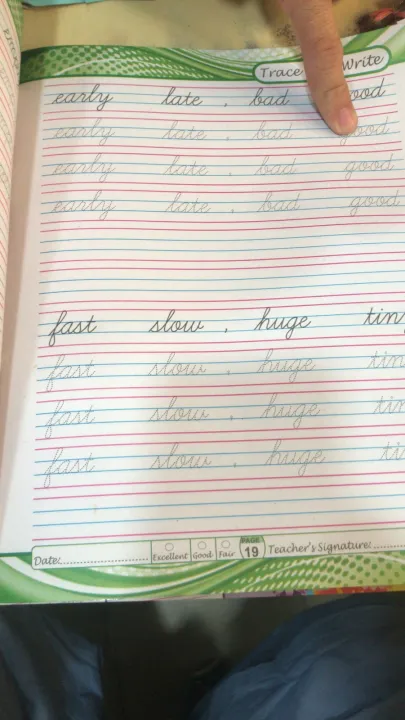 Trace Write
early late , bad good
early late , bad good
early late , bad good
early late , bad good
fast slow , huge tin
fast slow , huge tin
fast slow , huge tin
fast slow , huge ti
Date:
Excellent Good Fair PAGE 19 Teacher's Signature: